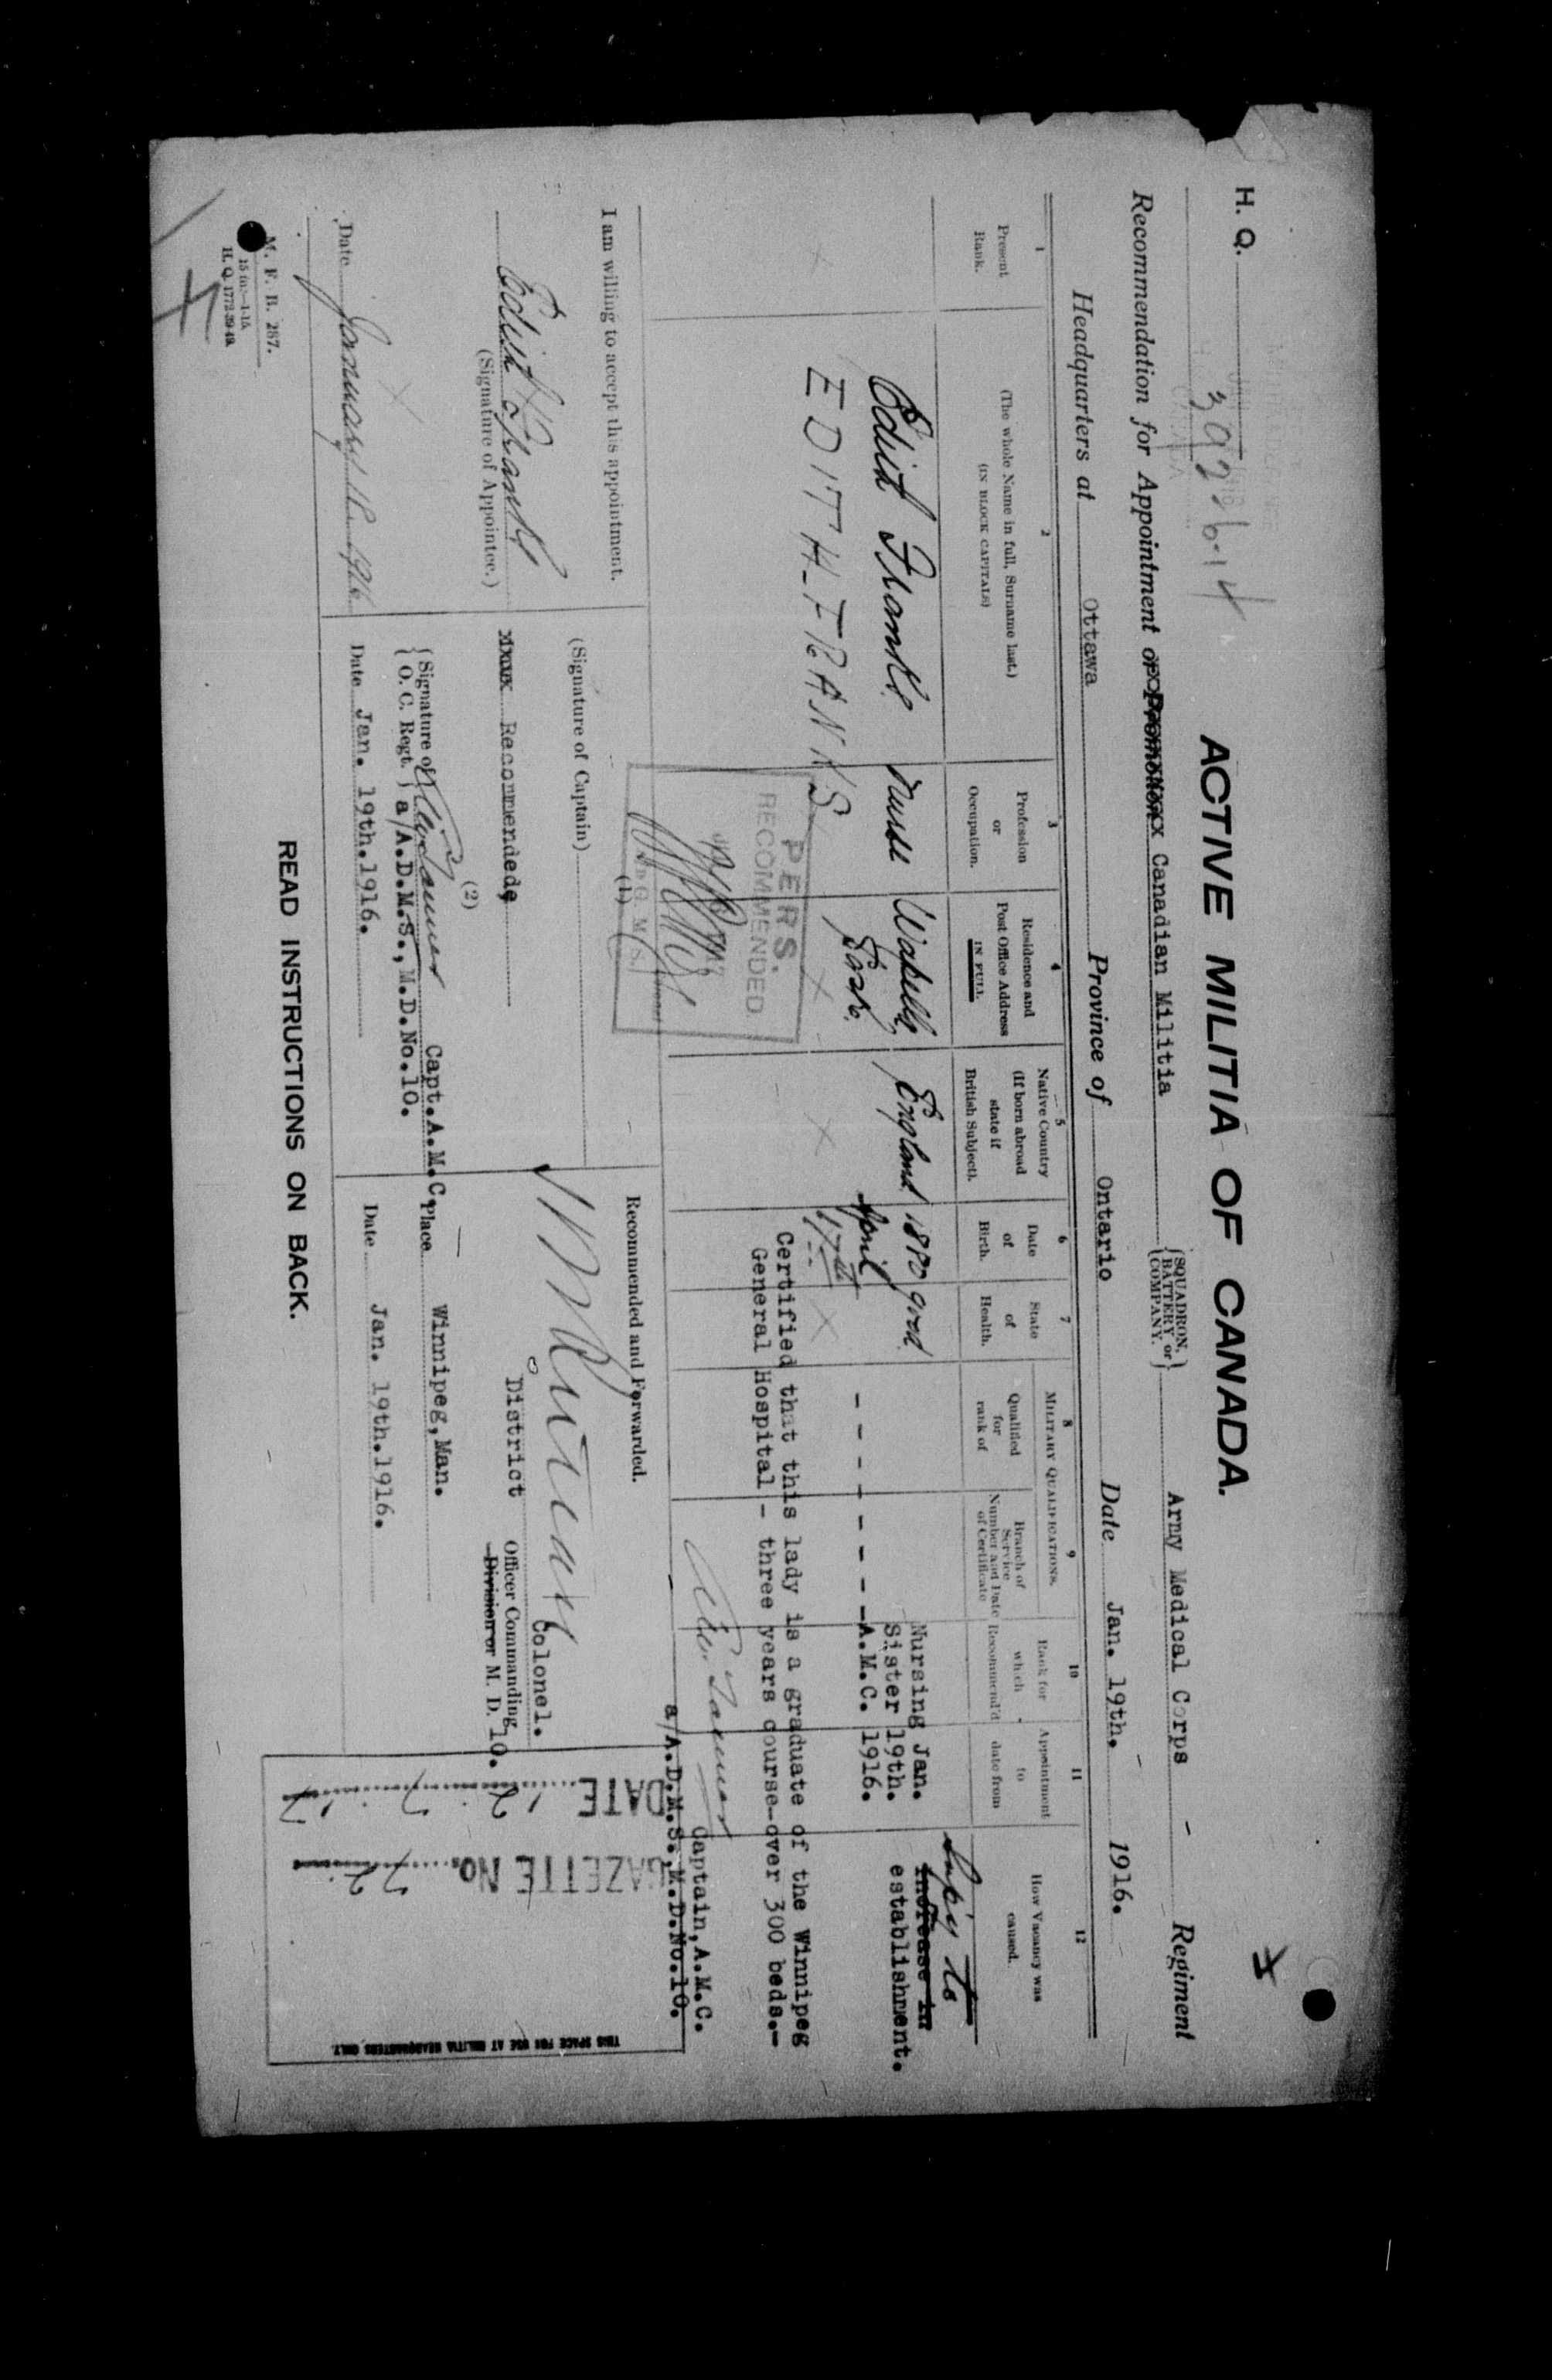 H. Q. 392-6-14
ACTIVE MILITIA OF CANADA.
Recommendation for Appointment or Promotion Canadian Militia { SQUADRON, BATTERY or COMPANY. } Army Medical Corps - Regiment
Headquarters at Ottawa Province of Ontario Date Jan. 19th. 1916.
1
Present Rank.
2
(The whole Name in full, Surname last.)
(IN BLOCK CAPITALS)
3
Profession or Occupation.
4
Residence and Post Office Address IN FULL
5
Native Country (If born abroad state if British Subject).
6
Date of Birth.
7
State of Health.
MILITARY QUALIFICATIONS.
8
Qualified for rank of
9
Branch of Service Number and Date of Certificate
10
Rank for which Recommend'd
11
Appointment to date from
12
How Vacancy was caused.
Edith Franks Nurse Wapella, England 1880 good Nursing Jan. increase in
Sask. April Sister 19th. establishment.
17th - - - - - - - - A.M.C. 1916.
EDITH-FRANKS
Certified that this lady is a graduate of the Winnipeg
General Hospital - three years course-over 300 beds.-
Captain, A.M.C.
a/A.D.M.S., M.D.No.10.
PERS.
RECOMMENDED
I am willing to accept this appointment.
Edith Franks
(Signature of Appointee.)
Date January 1916
(1)
(Signature of Captain)
Recommended
(2)
{ Signature of O. C. Regt. } Capt.A.M.C.
a/A.D.M.S., M.D.No.10.
Date Jan. 19th.1916.
Recommended and Forwarded.
Colonel.
District Officer Commanding
Division or M. D. 10.
Place Winnipeg, Man.
Date Jan. 19th.1916.
GAZETTE No.
DATE
THIS SPACE FOR USE AT MILITIA HEADQUARTERS ONLY.
M. F. B. 287.
H. Q. 1772-39-49.
READ INSTRUCTIONS ON BACK.